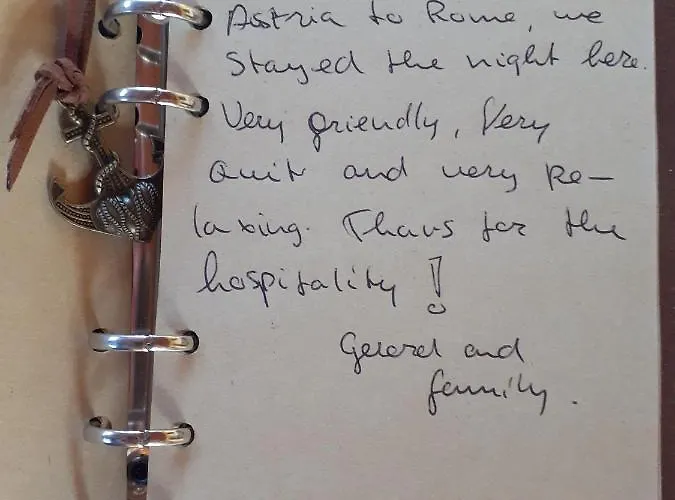 Astria to Rome, we
stayed the night here.
Very friendly, Very
Quit and very Re-
laxing. Thans for the
hospitality!
Gerard and
family.